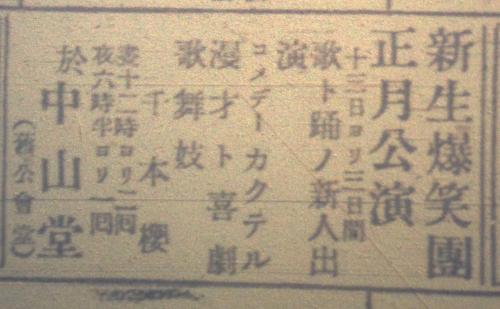 新生爆笑團
正月公演
十三日ヨリ三日間
歌ト踊ノ新人出
演
コメデーカクテル
漫才ト喜劇
歌舞妓
千本櫻
晝十二時ヨリ二囘
夜六時半ヨリ一囘
於中山堂
(舊公會堂)